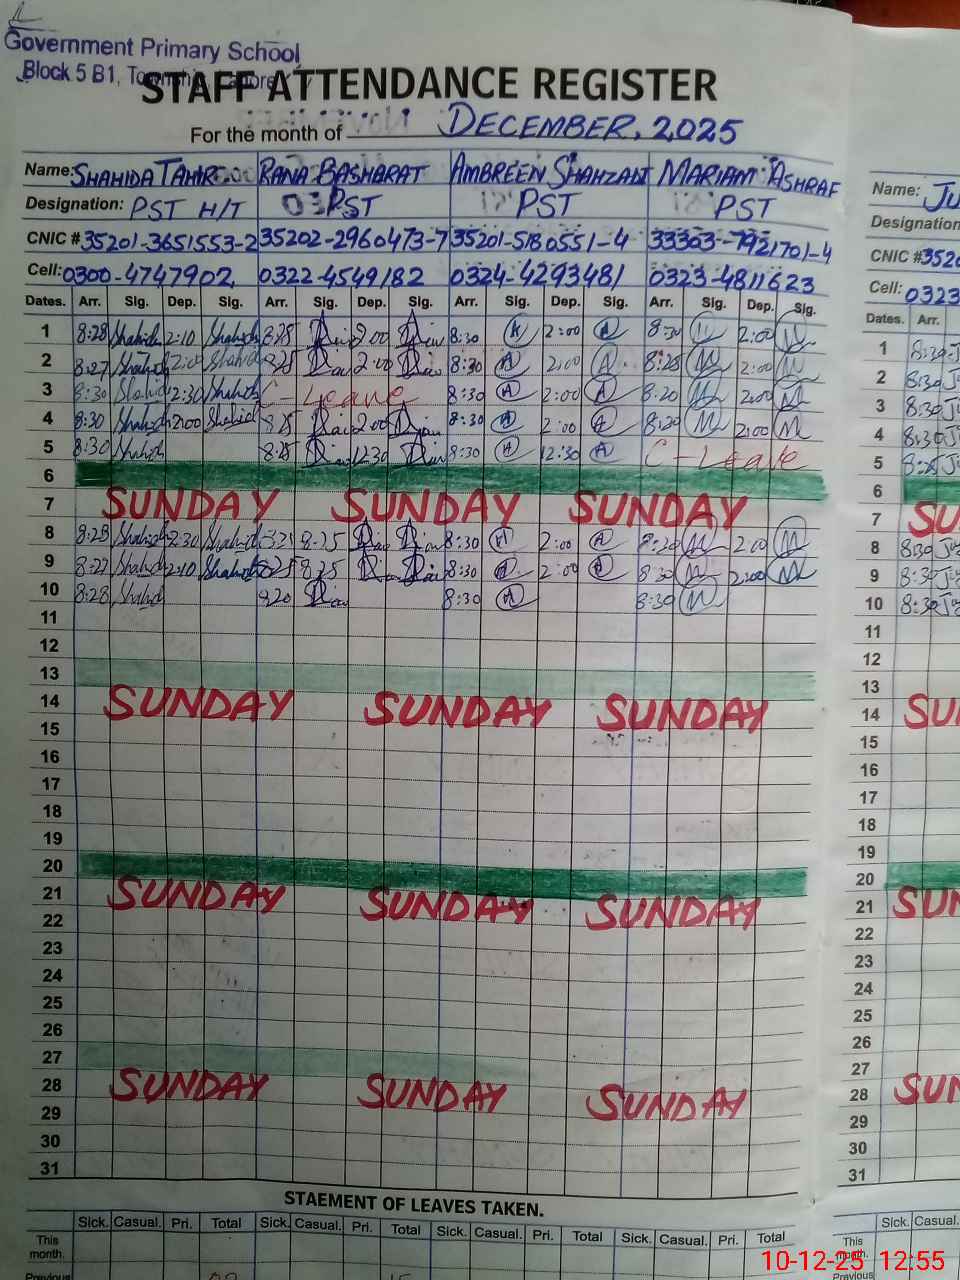 Government Primary School
Block 5 B1, Township Lahore
STAFF ATTENDANCE REGISTER
For the month of DECEMBER, 2025
Name: SHAHIDA TAHIR RANA BASHARAT AMBREEN SHAHZADI MARIAM ASHRAF
Designation: PST H/T PST PST PST
CNIC # 35201-3651553-2 35202-2960473-7 35201-5180551-4 33303-7921701-4
Cell: 0300-4747902 0322-4549182 0324-4293481 0323-4811623
Dates. Arr. Sig. Dep. Sig. Arr. Sig. Dep. Sig. Arr. Sig. Dep. Sig. Arr. Sig. Dep. Sig.
1 8:28 Shahid 2:10 Shahid 8:25 2:00 8:30 A 2:00 A 8:30 M 2:00 M
2 8:27 Shahid 2:00 Shahid 8:25 2:00 8:30 A 2:00 A 8:28 M 2:00 M
3 8:30 Shahid 2:30 Shahid C-Leave 8:30 A 2:00 A 8:20 M 2:00 M
4 8:30 Shahid 2:00 Shahid 8:25 2:00 8:30 A 2:00 A 8:20 M 2:00 M
5 8:30 Shahid 8:25 12:30 8:30 A 12:30 A C-Leave
6
7 SUNDAY SUNDAY SUNDAY
8 8:23 Shahid 2:30 Shahid 8:25 8:30 A 2:00 A 8:20 M 2:00 M
9 8:27 Shahid 2:10 Shahid 8:25 8:30 A 2:00 A 8:30 M 2:00 M
10 8:28 Shahid 8:20 8:30 A 8:30 M
11
12
13
14 SUNDAY SUNDAY SUNDAY
15
16
17
18
19
20
21 SUNDAY SUNDAY SUNDAY
22
23
24
25
26
27
28 SUNDAY SUNDAY SUNDAY
29
30
31
STAEMENT OF LEAVES TAKEN.
Sick. Casual. Pri. Total Sick. Casual. Pri. Total Sick. Casual. Pri. Total Sick. Casual. Pri. Total
This month.
Previous
Name: JU
Designation
CNIC # 3520
Cell: 0323
Dates. Arr.
1 8:30
2 8:30
3 8:30
4 8:30
5 8:25
6
7 SU
8 8:30
9 8:30
10 8:30
11
12
13
14 SU
15
16
17
18
19
20
21 SUN
22
23
24
25
26
27
28 SUN
29
30
31
Sick. Casual.
This month.
Previous
10-12-25 12:55